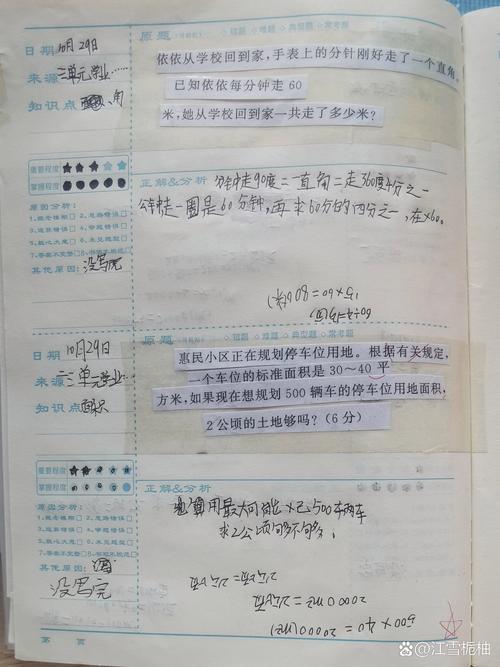 原题 错题 难题 典型题 常考题
日期 10月29日
依依从学校回到家，手表上的分针刚好走了一个直角。
来源 三单元学业……
已知依依每分钟走 60
知识点 角
米，她从学校回到家一共走了多少米？
重要程度
掌握程度
正解&分析 分针走90度=一直角=走360度4分之一
分针走一圈是60分钟，再求60分的四分之一，在×60。
原因分析：
1.概念模糊 2.思路错误
3.运算错误 4.审题错误
5.粗心大意 6.未见题型
7.答案不完整
其他原因：没写完
60÷4=15(分)
原题 错题 难题 典型题 常考题
日期 10月29日
惠民小区正在规划停车位用地。根据有关规定，
来源 三单元学业…
一个车位的标准面积是 30～40 平
知识点
方米，如果现在想规划 500 辆车的停车位用地面积，
2 公顷的土地够吗？（6 分）
重要程度
掌握程度
正解&分析
算用最大可能×500车辆
求2公顷够不够。
原因分析：
1.概念模糊 2.思路错误
3.运算错误 4.审题错误
5.粗心大意 6.未见题型
7.答案不完整
其他原因：
没写完
500×40=20000(m²)
20000m²=2公顷
2公顷=2公顷
第 页
@江雪栀柚